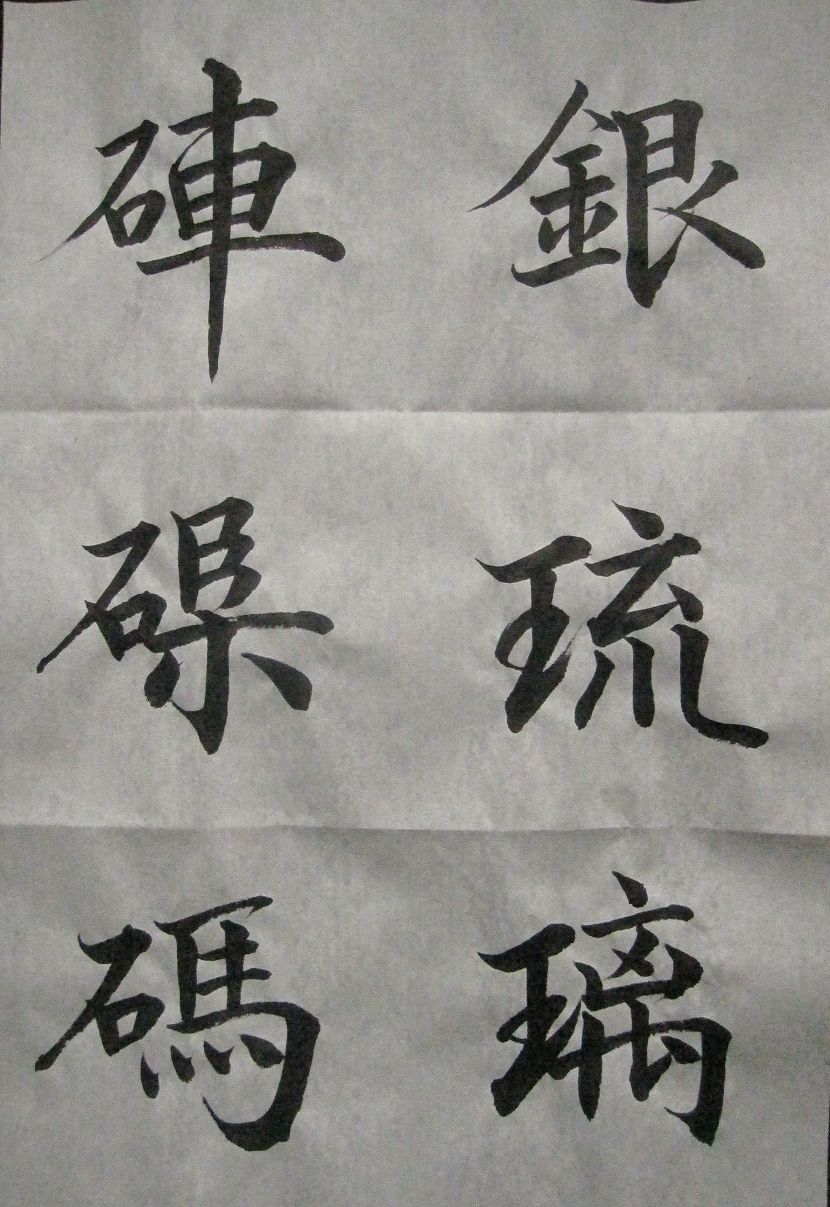 銀琉璃
硨磲碼